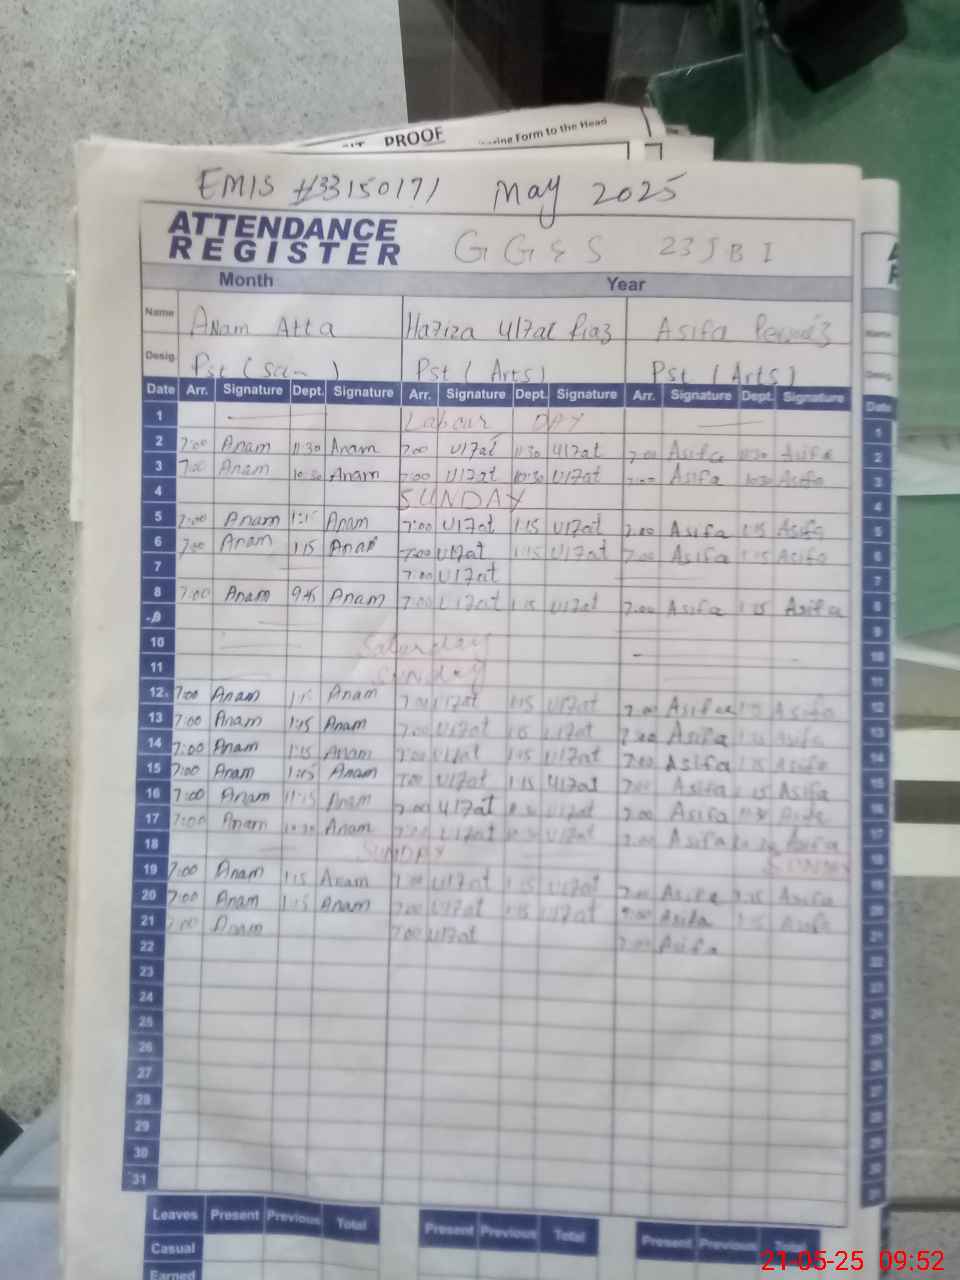 PROOF
Form to the Head
EMIS #33150171 May 2025
ATTENDANCE
REGISTER
G G E S 23 J B I
Month Year
Name Anam Atta Hafiza Ulfat Riaz Asifa
Desig. Pst ( ) Pst ( Arts ) Pst ( Arts )
Date Arr. Signature Dept. Signature Arr. Signature Dept. Signature Arr. Signature Dept. Signature Date
1 Labour DAY 1
2 7:00 Anam 11:30 Anam 7:00 Ulfat 11:30 Ulfat 7:00 Asifa 11:30 Asifa 2
3 7:00 Anam 10:30 Anam 7:00 Ulfat 10:30 Ulfat 7:00 Asifa 10:30 Asifa 3
4 SUNDAY 4
5 7:00 Anam 1:15 Anam 7:00 Ulfat 1:15 Ulfat 7:00 Asifa 1:15 Asifa 5
6 7:00 Anam 1:15 Anam 7:00 Ulfat 1:15 Ulfat 7:00 Asifa 1:15 Asifa 6
7 7:00 Ulfat 7
8 7:00 Anam 9:45 Anam 7:00 Ulfat 1:15 Ulfat 7:00 Asifa 1:15 Asifa 8
9 9
10 Saturday 10
11 Sunday 11
12 7:00 Anam 1:15 Anam 7:00 Ulfat 1:15 Ulfat 7:00 Asifa Asifa 12
13 7:00 Anam 1:15 Anam 7:00 Ulfat 1:15 Ulfat 7:00 Asifa Asifa 13
14 7:00 Anam 1:15 Anam 7:00 Ulfat 1:15 Ulfat 7:00 Asifa 1:15 Asifa 14
15 7:00 Anam 1:15 Anam 7:00 Ulfat 1:15 Ulfat 7:00 Asifa 1:15 Asifa 15
16 7:00 Anam Anam 7:00 Ulfat Ulfat 7:00 Asifa Asifa 16
17 7:00 Anam 10:30 Anam 7:00 Ulfat 10:30 Ulfat 7:00 Asifa Asifa 17
18 SUNDAY SUNDAY 18
19 7:00 Anam 1:15 Anam 7:00 Ulfat 1:15 Ulfat 7:00 Asifa 1:15 Asifa 19
20 7:00 Anam 1:15 Anam 7:00 Ulfat 1:15 Ulfat 7:00 Asifa 1:15 Asifa 20
21 7:00 Anam 7:00 Ulfat 7:00 Asifa 21
22 22
23 23
24 24
25 25
26 26
27 27
28 28
29 29
30 30
31 31
Leaves Present Previous Total Present Previous Total Present Previous Total
Casual
Earned
21-05-25 09:52